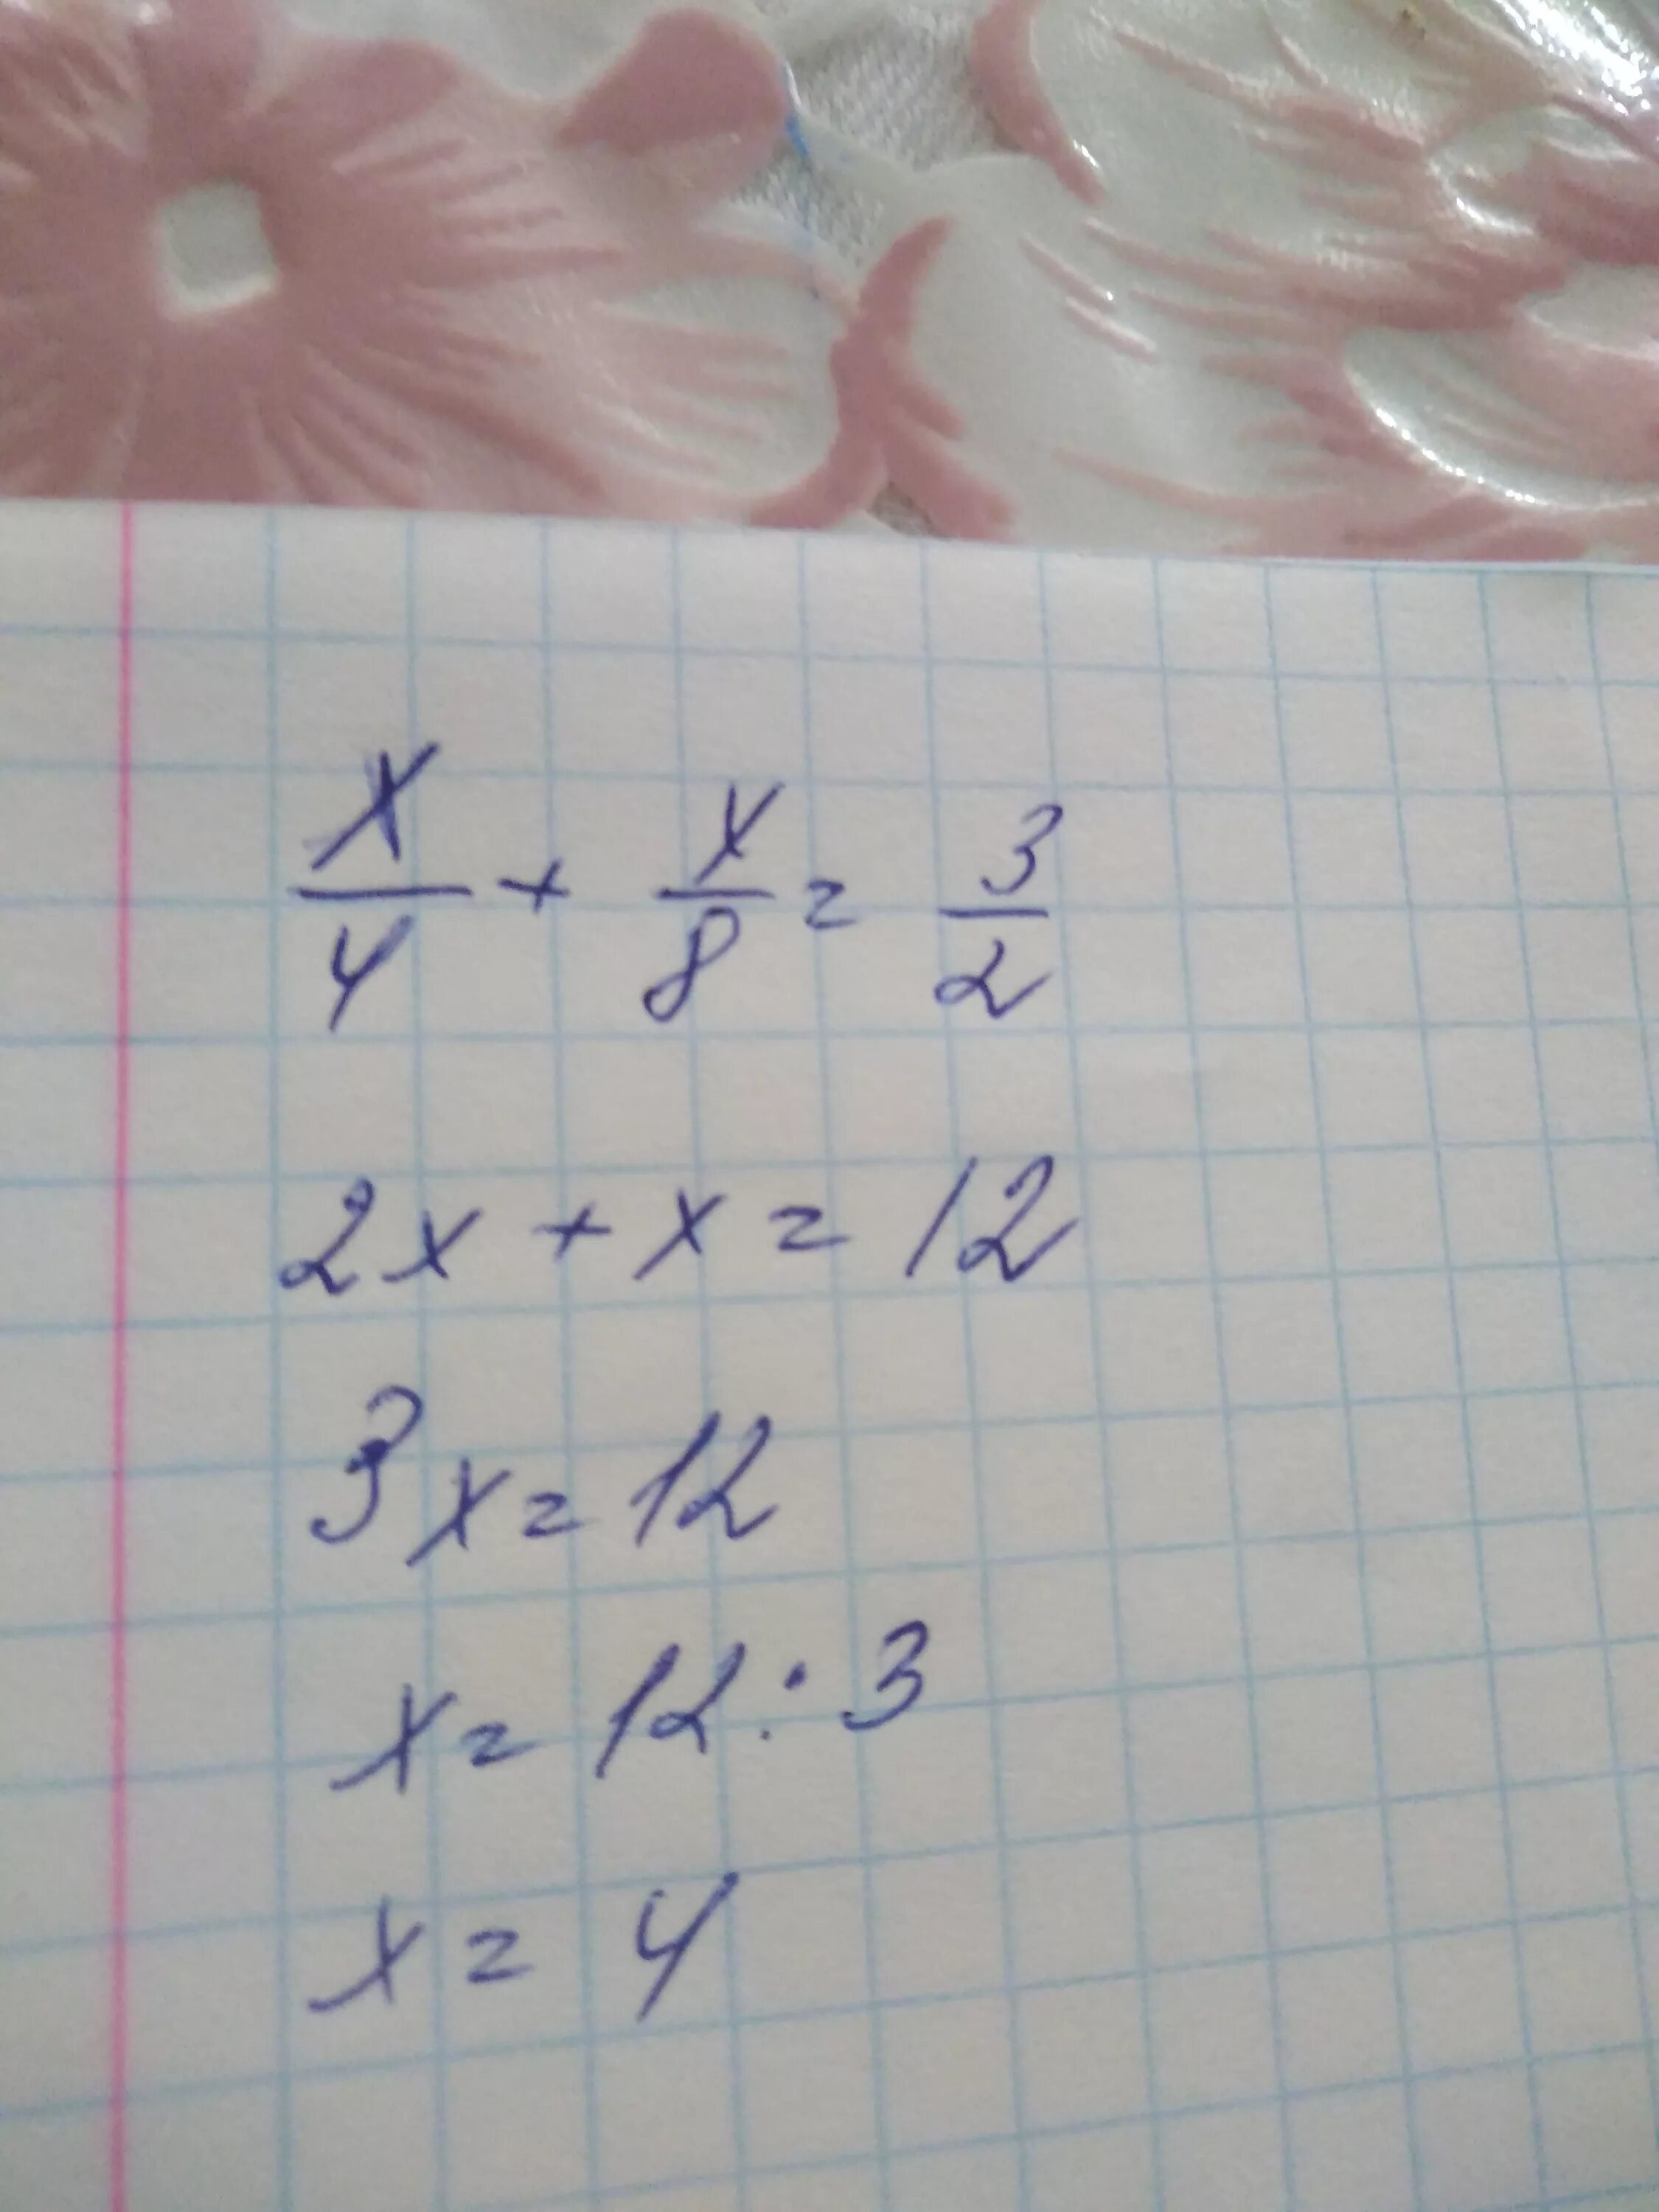 x/4 + x/8 = 3/2
2x + x = 12
3x = 12
x = 12 : 3
x = 4